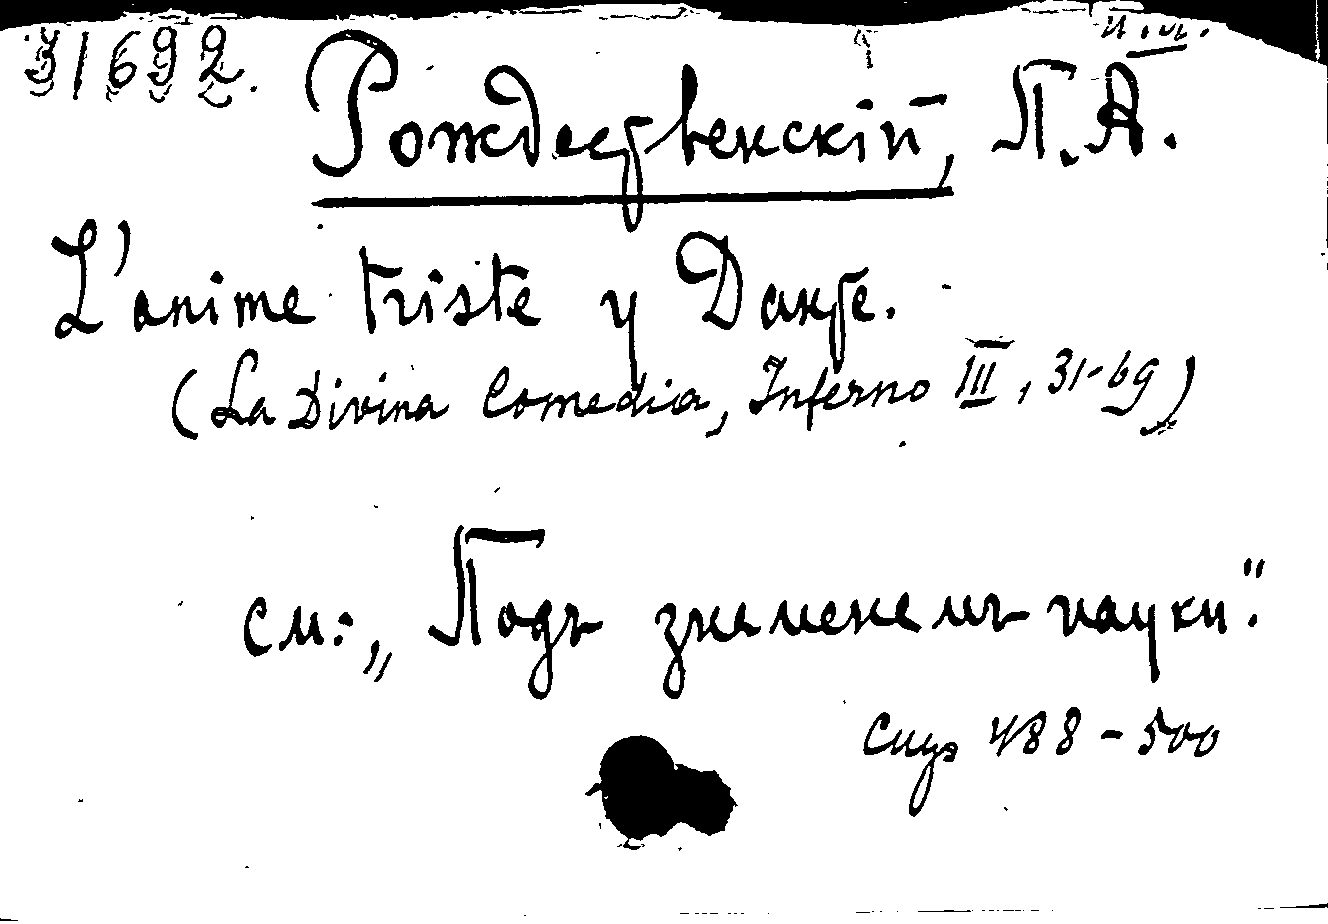 31692.
Рождественскій, П. А.
L'anime triste у Данте.
(La Divina Comedia, Inferno III, 31-69)
см: „Подъ знаменемъ науки".
Стр 488-500